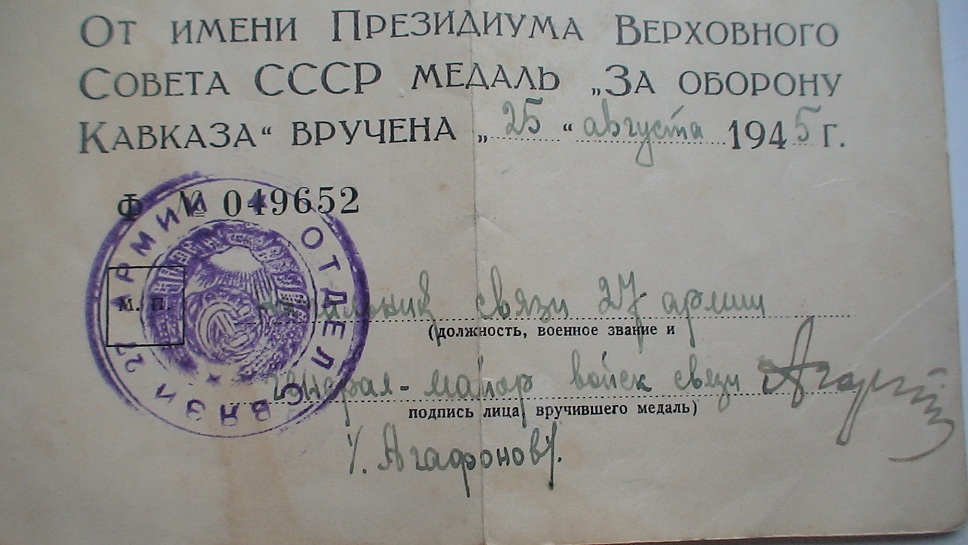 От имени Президиума Верховного
Совета СССР медаль „За оборону
Кавказа“ вручена „25“ августа 1945 г.
Ф № 049652
ОТДЕЛ СВЯЗИ 27 АРМИИ
М. П.
начальник связи 27 армии
(должность, военное звание и
генерал-майор войск связи
подпись лица, вручившего медаль)
/. Агафонов/.